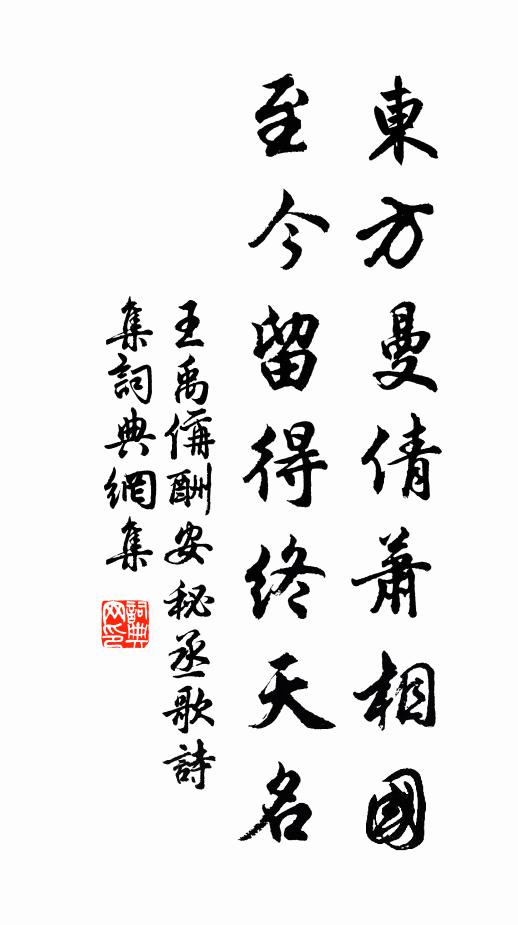 東方曼倩蕭相國
至今留得終天名
王禹偁酬安秘丞歌詩
集詞典網集
詞典网印